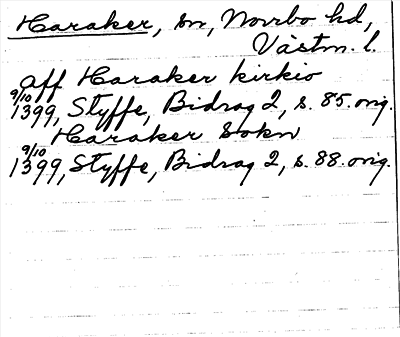 Haraker, sn, Norrbo hd,
Västm. l.
aff Haraker kirkio
9/10
1399, Styffe, Bidrag 2, s. 85. orig.
Haraker Sokn
9/10
1399, Styffe, Bidrag 2, s. 88. orig.